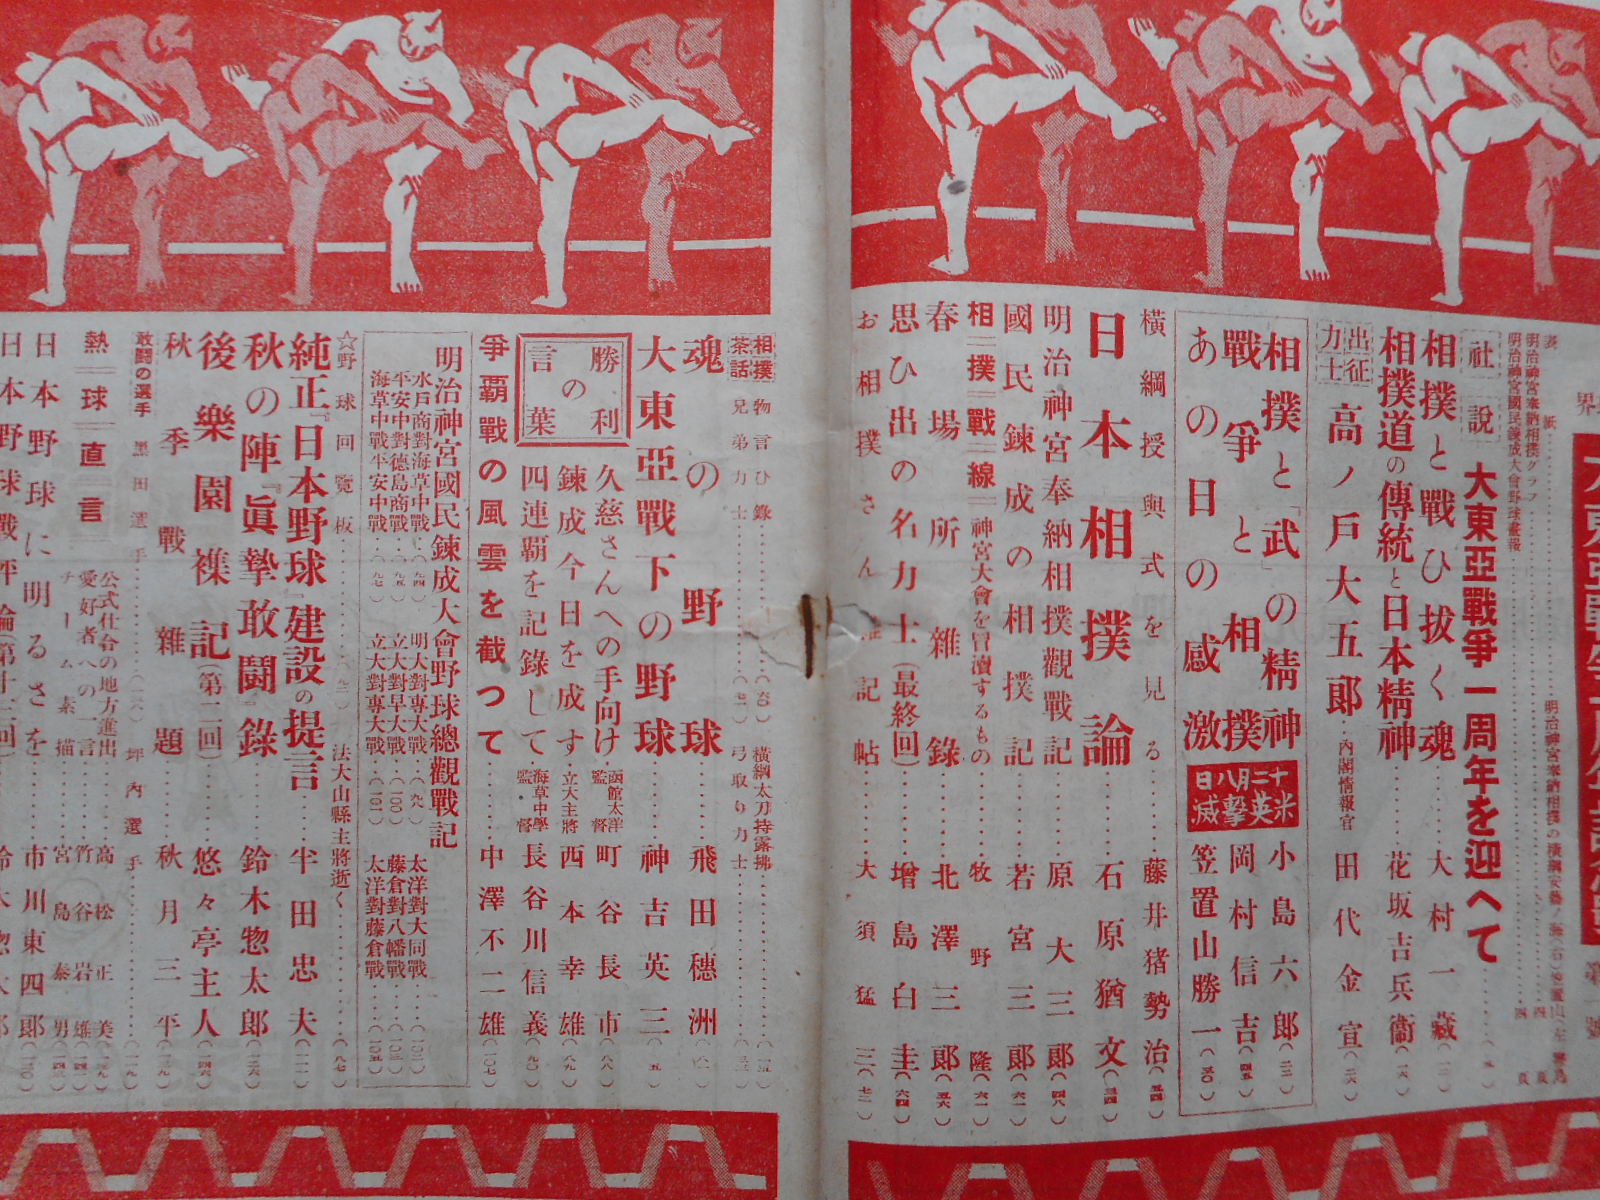 社説 大東亞戰爭一周年を迎へて
相撲と戰ひ拔く魂 大村一藏
相撲道の傳統と日本精神 花坂吉兵衞
出征力士 高ノ戸大五郎 內閣情報官 田代金宣
相撲と「武」の精神 小島六郎
戰爭と相撲 岡村信吉
あの日の感激 十二月八日米英擊滅 笠置山勝一
橫綱授與式を見る 藤井猪勢治
日本相撲論 石原猶文
明治神宮奉納相撲觀戰記 原大三郎
國民鍊成の相撲記 若宮三郎
相撲戰線 神宮大會を冒瀆するもの 牧野隆
春場所雜錄 北澤三郎
思ひ出の名力士(最終回) 增島白圭
お相撲さん雜記帖 大須猛三
相撲茶話 物言ひ錄 橫綱太刀持露拂
兄弟力士 弓取り力士
魂の野球 飛田穗洲
大東亞戰下の野球 神吉英三
勝利の言葉
久慈さんへの手向け 函館太洋監督 町谷長市
鍊成今日を成す 立大主將 西本幸雄
四連覇を記錄して 海草中學監督 長谷川信義
爭覇戰の風雲を截つて 中澤不二雄
明治神宮國民鍊成大會野球總觀戰記
水戶商對海草中戰 明大對專大戰 太洋對大同戰
平安中對德島商戰 立大對早大戰 藤倉對八幡戰
海草中戰平安中戰 立大對專大戰 太洋對藤倉戰
☆野球回覽板 法大山縣主將逝く
純正『日本野球』建設の提言 半田忠夫
秋の陣『眞摯敢鬪』錄 鈴木惣太郎
後樂園襍記(第二回) 悠々亭主人
秋季戰雜題 秋月三平
敢鬪の選手 黑田選手 坪內選手
熱球直言
公式仕合の地方進出 高松正美
愛好者への一言 竹谷岩雄
チーム素描 宮島泰男
日本野球に明るさを 市川東四郎
日本野球戰評論